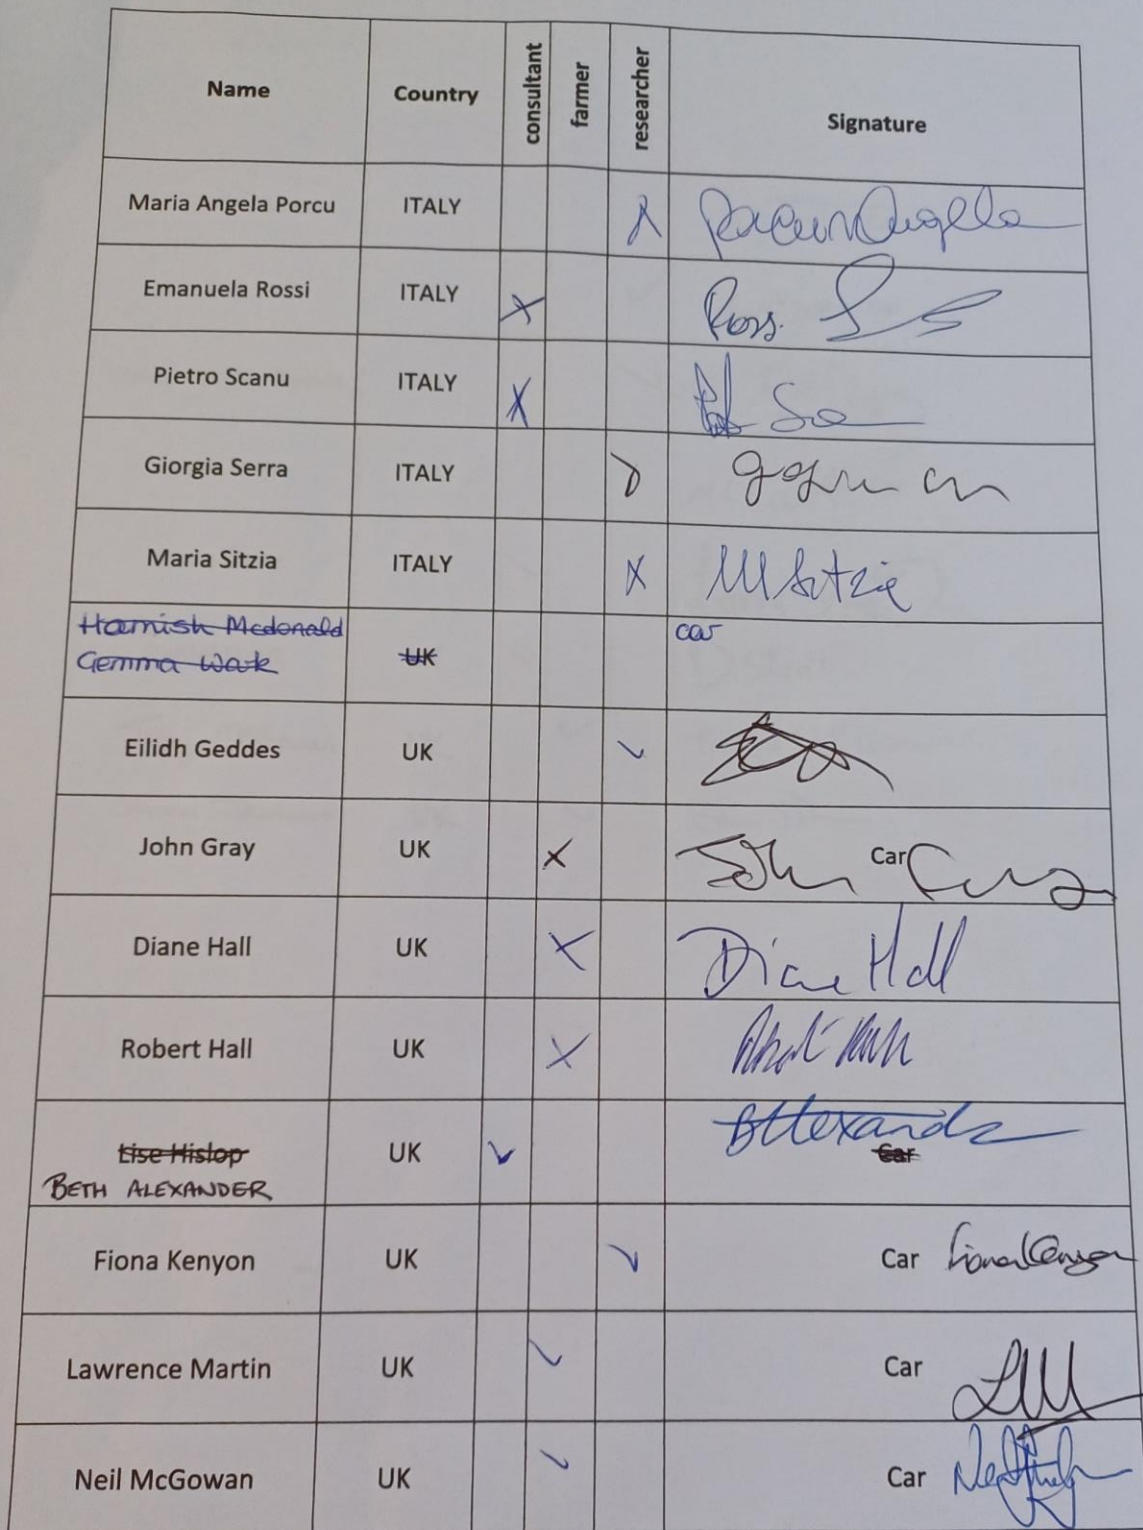 Name Country consultant farmer researcher Signature
Maria Angela Porcu ITALY
Emanuela Rossi ITALY X
Pietro Scanu ITALY X
Giorgia Serra ITALY
Maria Sitzia ITALY X M Sitzia
Hamish Mcdonald car
Gemma Wark UK
Eilidh Geddes UK ✓
John Gray UK X John Car Gray
Diane Hall UK X Diane Hall
Robert Hall UK X Robert Hall
Lise Hislop UK ✓ BAlexander Car
BETH ALEXANDER
Fiona Kenyon UK ✓ Car Fiona Kenyon
Lawrence Martin UK ✓ Car
Neil McGowan UK ✓ Car